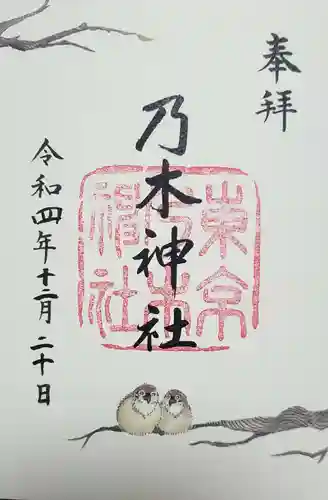 奉拝
乃木神社
東京
乃木
神社
令和四年十二月二十日